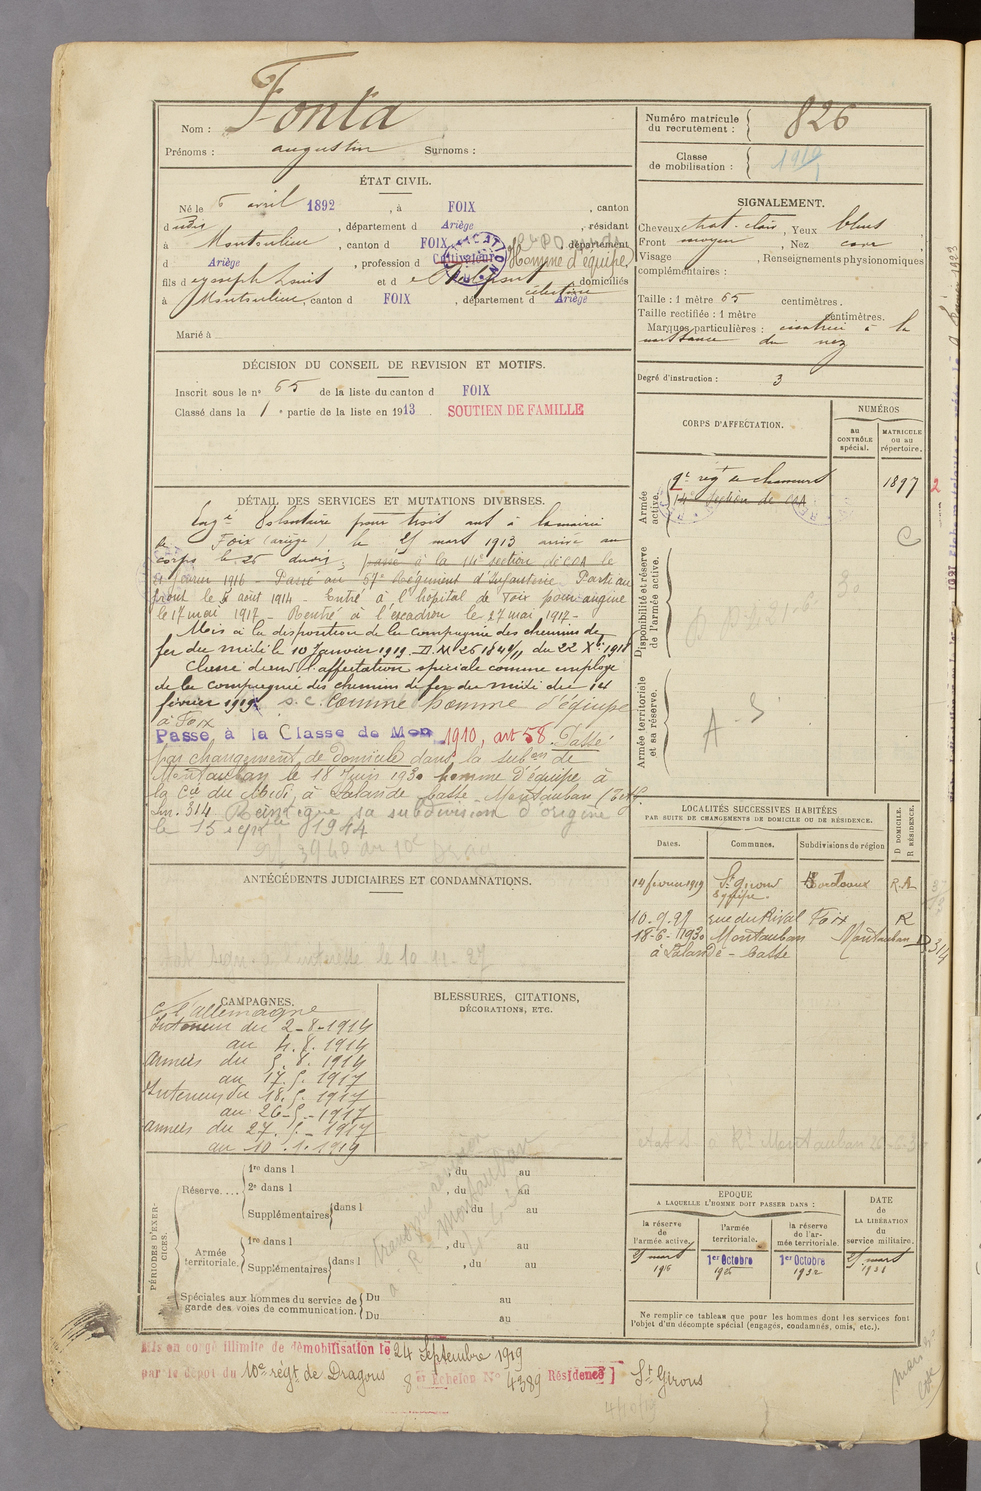 Nom : Fonta
Prénoms : augustin Surnoms :
Numéro matricule du recrutement : 826
Classe de mobilisation : 1914
ÉTAT CIVIL.
Né le 6 avril 1892, à FOIX, canton
dudit, département d Ariège, résidant
à Montoulieu, canton d FOIX, département
d Ariège, profession de Cultivateur Homme d'équipe
fils de Joseph Louis et de domiciliés
célestine
à Montoulieu, canton d FOIX, département d Ariège
Marié à
SIGNALEMENT.
Cheveux chat. clair, Yeux bleus
Front moyen, Nez cave
Visage , Renseignements physionomiques
complémentaires :
Taille : 1 mètre 65 centimètres.
Taille rectifiée : 1 mètre centimètres.
Marques particulières : cicatrice à la
naissance du nez
Degré d'instruction : 3
DÉCISION DU CONSEIL DE REVISION ET MOTIFS.
Inscrit sous le n° 65 de la liste du canton d FOIX
Classé dans la 1e partie de la liste en 1913. SOUTIEN DE FAMILLE
CORPS D'AFFECTATION.
NUMÉROS
au CONTRÔLE spécial.
MATRICULE ou au répertoire.
Armée active.
9e régt de chasseurs 1897 2
14e Section de COA
Disponibilité et réserve de l'armée active.
Armée territoriale et sa réserve.
A. S.
DÉTAIL DES SERVICES ET MUTATIONS DIVERSES.
Engé Volontaire pour trois ans à la mairie
de Foix (ariège) le 25 mars 1913 arrivé au
corps le 26 dudit, passé à la 14e section de COA le
21 février 1916 - Passé au 57e Régiment d'Infanterie. Parti au
front le 5 août 1914 - Entré à l'hôpital de Foix pour angine
le 17 mai 1917 - Rentré à l'escadron le 27 mai 1917 -
Mis à la disposition de la compagnie des chemins de
fer du midi le 10 Janvier 1919. D.M 26184 9/11 du 22 Xbre 1918
Classé dans l'affectation spéciale comme employé
de la compagnie des chemins de fer du midi du 14
février 1919, s. c. Comme homme d'équipe
à Foix
Passé à la Classe de Mon 1910, art 58. Passé
par changement de domicile dans la subon de
Montauban le 18 Juin 1930 homme d'équipe à
la Cie du Midi, à Lalande Basse - Montauban
Ln. 314 Réintègre sa subdivision d'origine
le 15 1944
LOCALITÉS SUCCESSIVES HABITÉES
PAR SUITE DE CHANGEMENTS DE DOMICILE OU DE RÉSIDENCE.
D DOMICILE. R RÉSIDENCE.
Dates. Communes. Subdivisions de région
14 février 1919 St Girons Bordeaux R.A
Equipe.
10-9-27 rue du Rival Foix R
18-6-1930 Montauban Montauban D 314
à Lalande - Basse
ANTÉCÉDENTS JUDICIAIRES ET CONDAMNATIONS.
CAMPAGNES.
c. l'allemagne
Intérieur du 2-8-1914
au 4.8.1914
armées du 5.8.1914
au 17.5.1917
Intérieur du 18.5.1917
au 26-5-1917
armées du 27.5.-1917
au 10.1.1919
BLESSURES, CITATIONS,
DÉCORATIONS, ETC.
PÉRIODES D'EXERCICES.
Réserve.... 1re dans l , du au
2e dans l , du au
Supplémentaires dans l , du au
Armée territoriale. 1re dans l , du au
Supplémentaires dans l , du au
Spéciales aux hommes du service de garde des voies de communication. Du au
Du au
EPOQUE
A LAQUELLE L'HOMME DOIT PASSER DANS :
DATE DE LA LIBÉRATION du service militaire.
la réserve de l'armée active.
l'armée territoriale.
la réserve de l'armée territoriale.
25 mars 1916
1er Octobre 1926
1er Octobre 1932
25 mars
Ne remplir ce tableau que pour les hommes dont les services font
l'objet d'un décompte spécial (engagés, condamnés, omis, etc.).
Mis en congé illimité de démobilisation le 24 Septembre 1919
par le dépôt du 10e régt de Dragons 8e Echelon N° 4389 Résidence St Girons